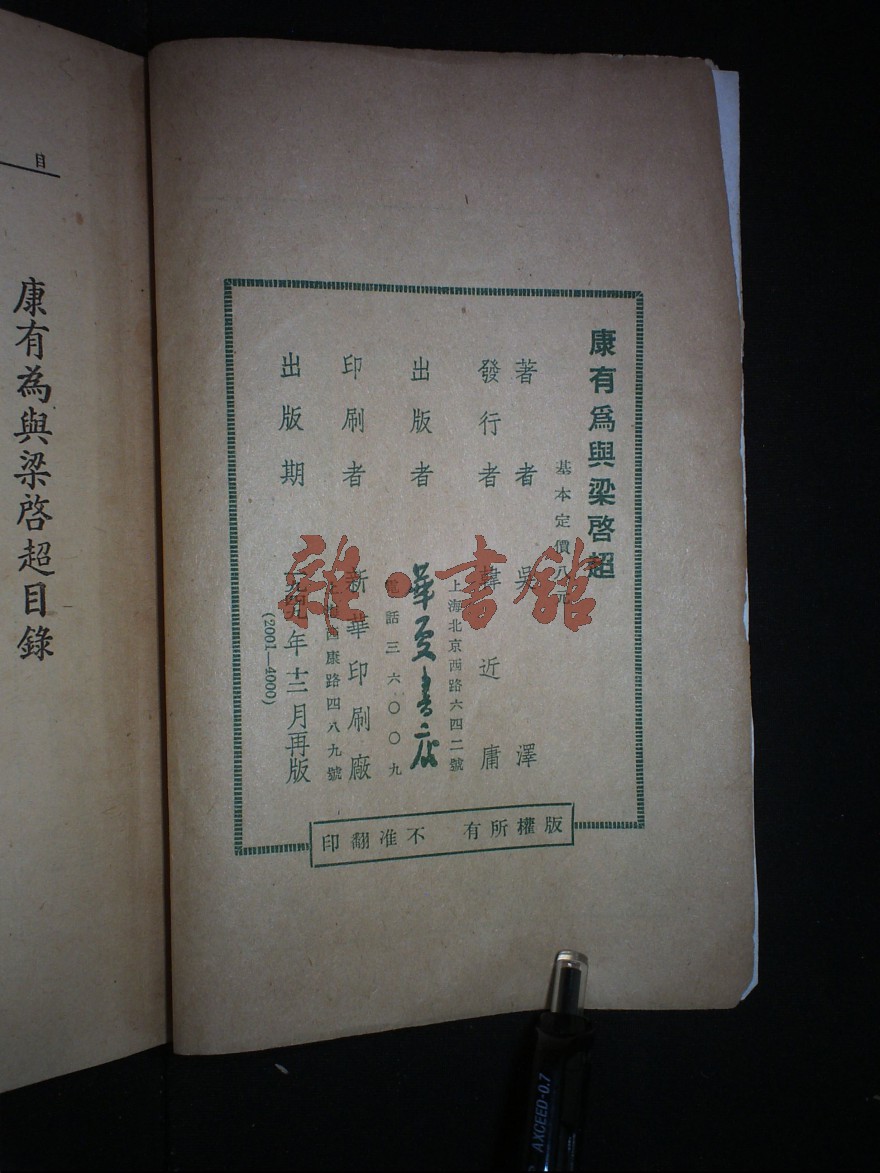 康有爲與梁啓超
基本定價八元
著者 吳澤
發行者 韓近庸
上海北京西路六四二號
出版者 華夏書店
電話三六〇〇九
印刷者 新華印刷廠
西康路四八九號
出版期 一九四九年十二月再版
(2001—4000)
版權所有 不准翻印
目
康有為與梁啓超目錄
雜·書館
AXCEED-0.7